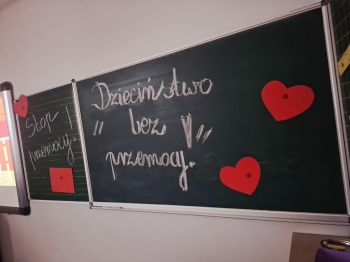 Stop
przemocy.
Dzieciństwo
" bez !"
przemocy.